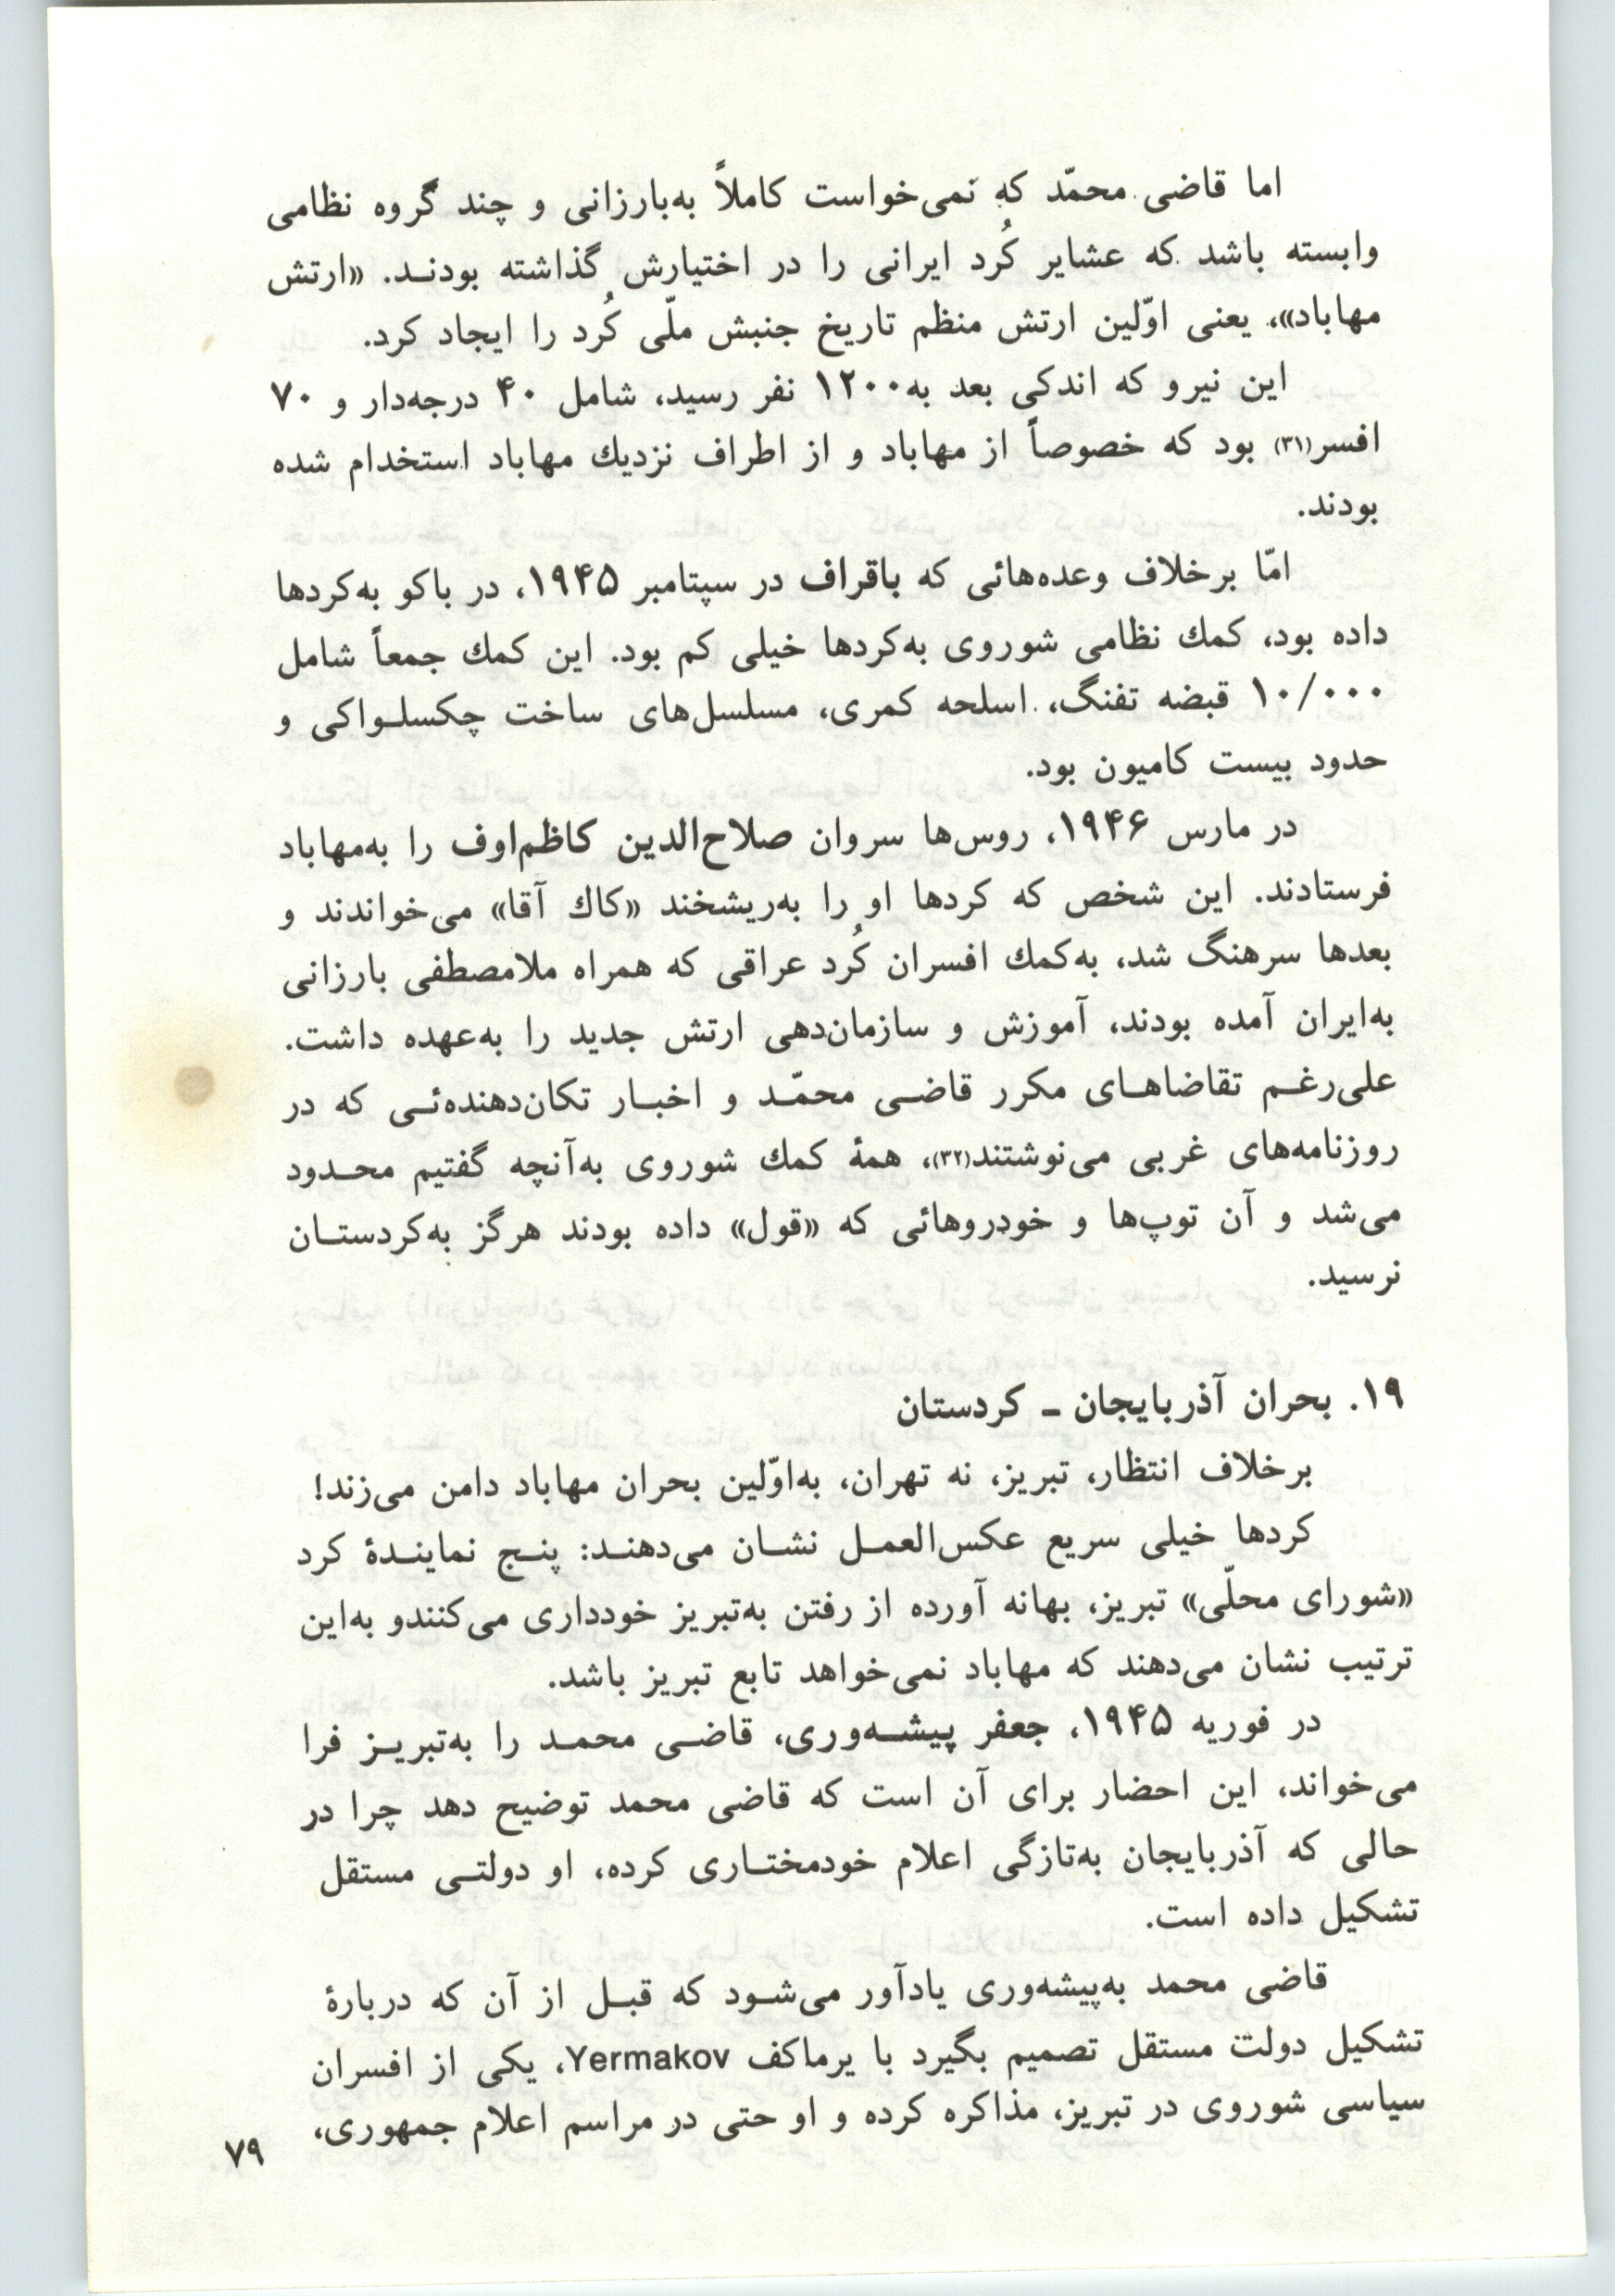 اما قاضی محمّد که نمی‌خواست کاملاً به‌بارزانی و چند گروه نظامی
وابسته باشد که عشایر کُرد ایرانی را در اختیارش گذاشته بودنـد. «ارتش
مهاباد»، یعنی اوّلین ارتش منظم تاریخ جنبش ملّی کُرد را ایجاد کرد.
این نیرو که اندکی بعد به۱۲۰۰ نفر رسید، شامل ۴۰ درجه‌دار و ۷۰
افسر(۳۱) بود که خصوصاً از مهاباد و از اطراف نزدیك مهاباد استخدام شده
بودند.
امّا برخلاف وعده‌هائی که باقراف در سپتامبر ۱۹۴۵، در باکو به‌کردها
داده بود، کمك نظامی شوروی به‌کردها خیلی کم بود. این کمك جمعاً شامل
۱۰/۰۰۰ قبضه تفنگ، اسلحه کمری، مسلسل‌های ساخت چکسلـواکی و
حدود بیست کامیون بود.
در مارس ۱۹۴۶، روس‌ها سروان صلاح‌الدین کاظم‌اوف را به‌مهاباد
فرستادند. این شخص که کردها او را به‌ریشخند «کاك آقا» می‌خواندند و
بعدها سرهنگ شد، به‌کمك افسران کُرد عراقی که همراه ملامصطفی بارزانی
به‌ایران آمده بودند، آموزش و سازمان‌دهی ارتش جدید را به‌عهده داشت.
علی‌رغـم تقاضاهـای مکرر قاضـی محمّـد و اخبـار تکان‌دهنده‌ئـی که در
روزنامه‌های غربی می‌نوشتند(۳۲)، همهٔ کمك شوروی به‌آنچه گفتیم محـدود
می‌شد و آن توپ‌ها و خودروهائی که «قول» داده بودند هرگز به‌کردستـان
نرسید.
۱۹. بحران آذربایجان ـ کردستان
برخلاف انتظار، تبریز، نه تهران، به‌اوّلین بحران مهاباد دامن می‌زند!
کردها خیلی سریع عکس‌العمـل نشـان می‌دهنـد: پنـج نماینـدهٔ کرد
«شورای محلّی» تبریز، بهانه آورده از رفتن به‌تبریز خودداری می‌کنندو به‌این
ترتیب نشان می‌دهند که مهاباد نمی‌خواهد تابع تبریز باشد.
در فوریه ۱۹۴۵، جعفر پیشـه‌وری، قاضـی محمـد را به‌تبریـز فرا
می‌خواند، این احضار برای آن است که قاضی محمد توضیح دهد چرا در
حالی که آذربایجان به‌تازگی اعلام خودمختـاری کرده، او دولتـی مستقل
تشکیل داده است.
قاضی محمد به‌پیشه‌وری یادآور می‌شـود که قبـل از آن که دربارهٔ
تشکیل دولت مستقل تصمیم بگیرد با یرماکف Yermakov، یکی از افسران
سیاسی شوروی در تبریز، مذاکره کرده و او حتی در مراسم اعلام جمهوری،
۷۹